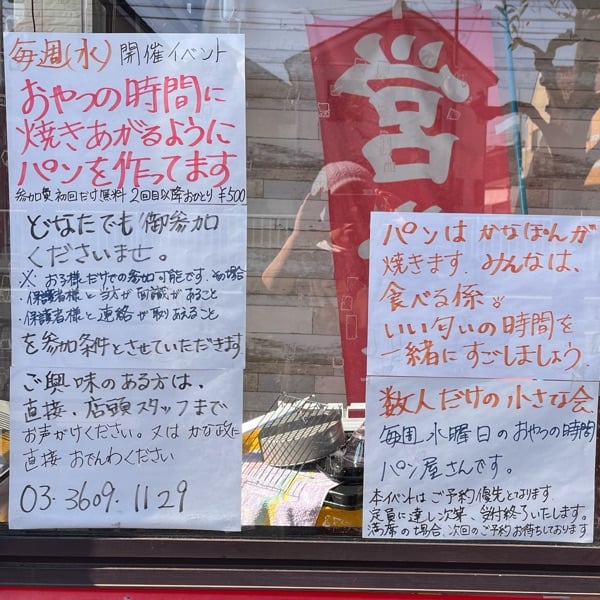 毎週(水) 開催イベント
おやつの時間に
焼きあがるように
パンを作ってます
参加費 初回だけ無料 2回目以降おひとり ¥500
どなたでも御参加
くださいませ。
※ お子様だけでの参加可能です。その場合
・保護者様と当方が面識があること
・保護者様と連絡が取りあえること
を参加条件とさせていただきます
ご興味のある方は、
直接、店頭スタッフまで
お声がけください。又は かな政に
直接 おでんわください
03.3609.1129
営
パンは かなぽんが
焼きます. みんなは、
食べる係
いい匂いの時間を
一緒にすごしましょう
数人だけの小さな会
毎週 水曜日のおやつの時間
パン屋さんです。
本イベントは ご予約優先となります
定員に達し次第、受付終了いたします。
満席の場合、次回のご予約お待ちしております